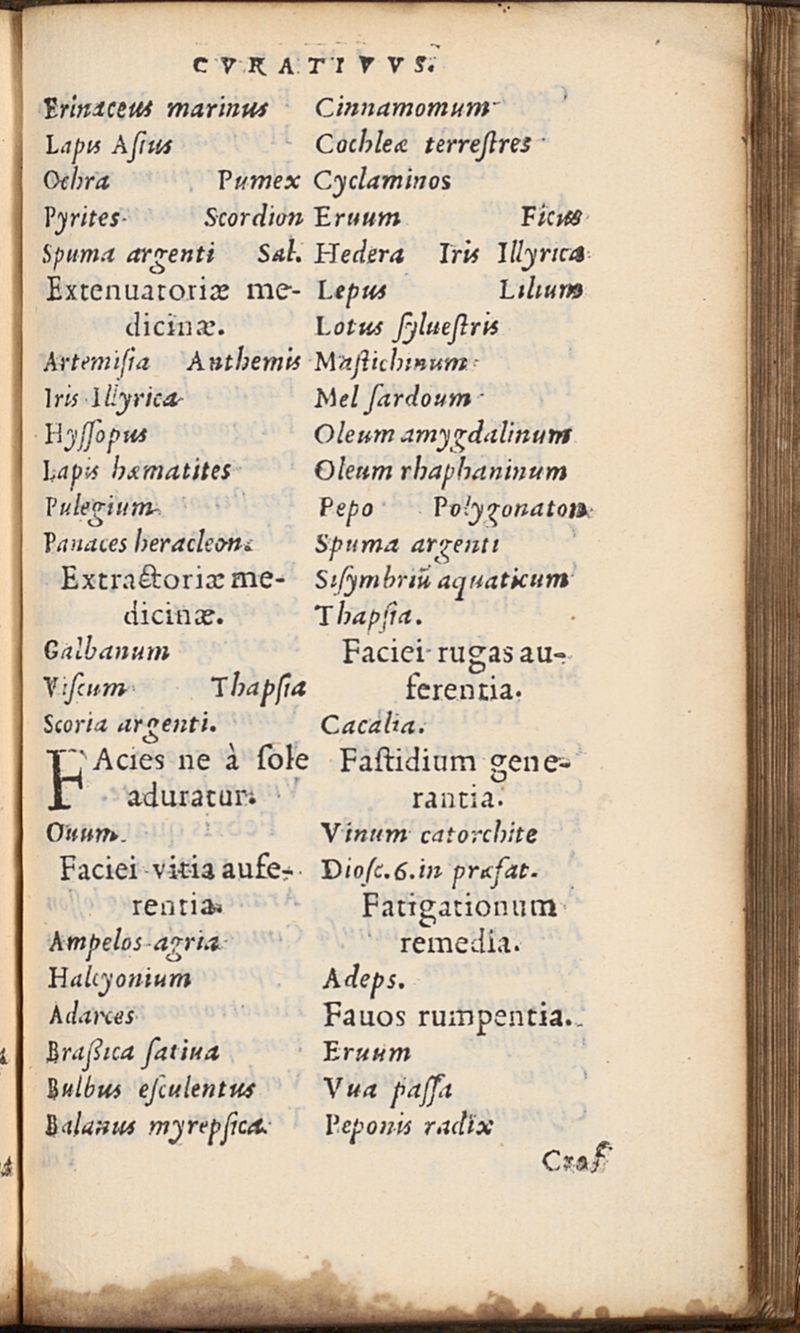 CVRATIVVS.
Erinaceus marinus
Lapis Aſius
Ochra Pumex
Pyrites Scordion
Spuma argenti Sal.
Extenuatoriæ me-
dicinæ.
Artemiſia Anthemis
Iris Illyrica
Hyſſopus
Lapis hæmatites
Pulegium
Panaces heracleon.
Extractoriæ me-
dicinæ.
Galbanum
Viſcum Thapſia
Scoria argenti.
FAcies ne à ſole
aduratur.
Ouum.
Faciei vitia aufe-
rentia.
Ampelos agria
Halcyonium
Adarces
Braßica ſatiua
Bulbus eſculentus
Balanus myrepſica.
Cinnamomum
Cochleæ terreſtres
Cyclaminos
Eruum Ficus
Hedera Iris Illyrica
Lepus Lilium
Lotus ſylueſtris
Maſtichinum
Mel ſardoum
Oleum amygdalinum
Oleum rhaphaninum
Pepo Polygonaton
Spuma argenti
Siſymbriū aquaticum
Thapſia.
Faciei rugas au-
ferentia.
Cacalia.
Faſtidium gene-
rantia.
Vinum catorchite
Dioſc. 6. in præfat.
Fatigationum
remedia.
Adeps.
Fauos rumpentia.
Eruum
Vua paſſa
Peponis radix